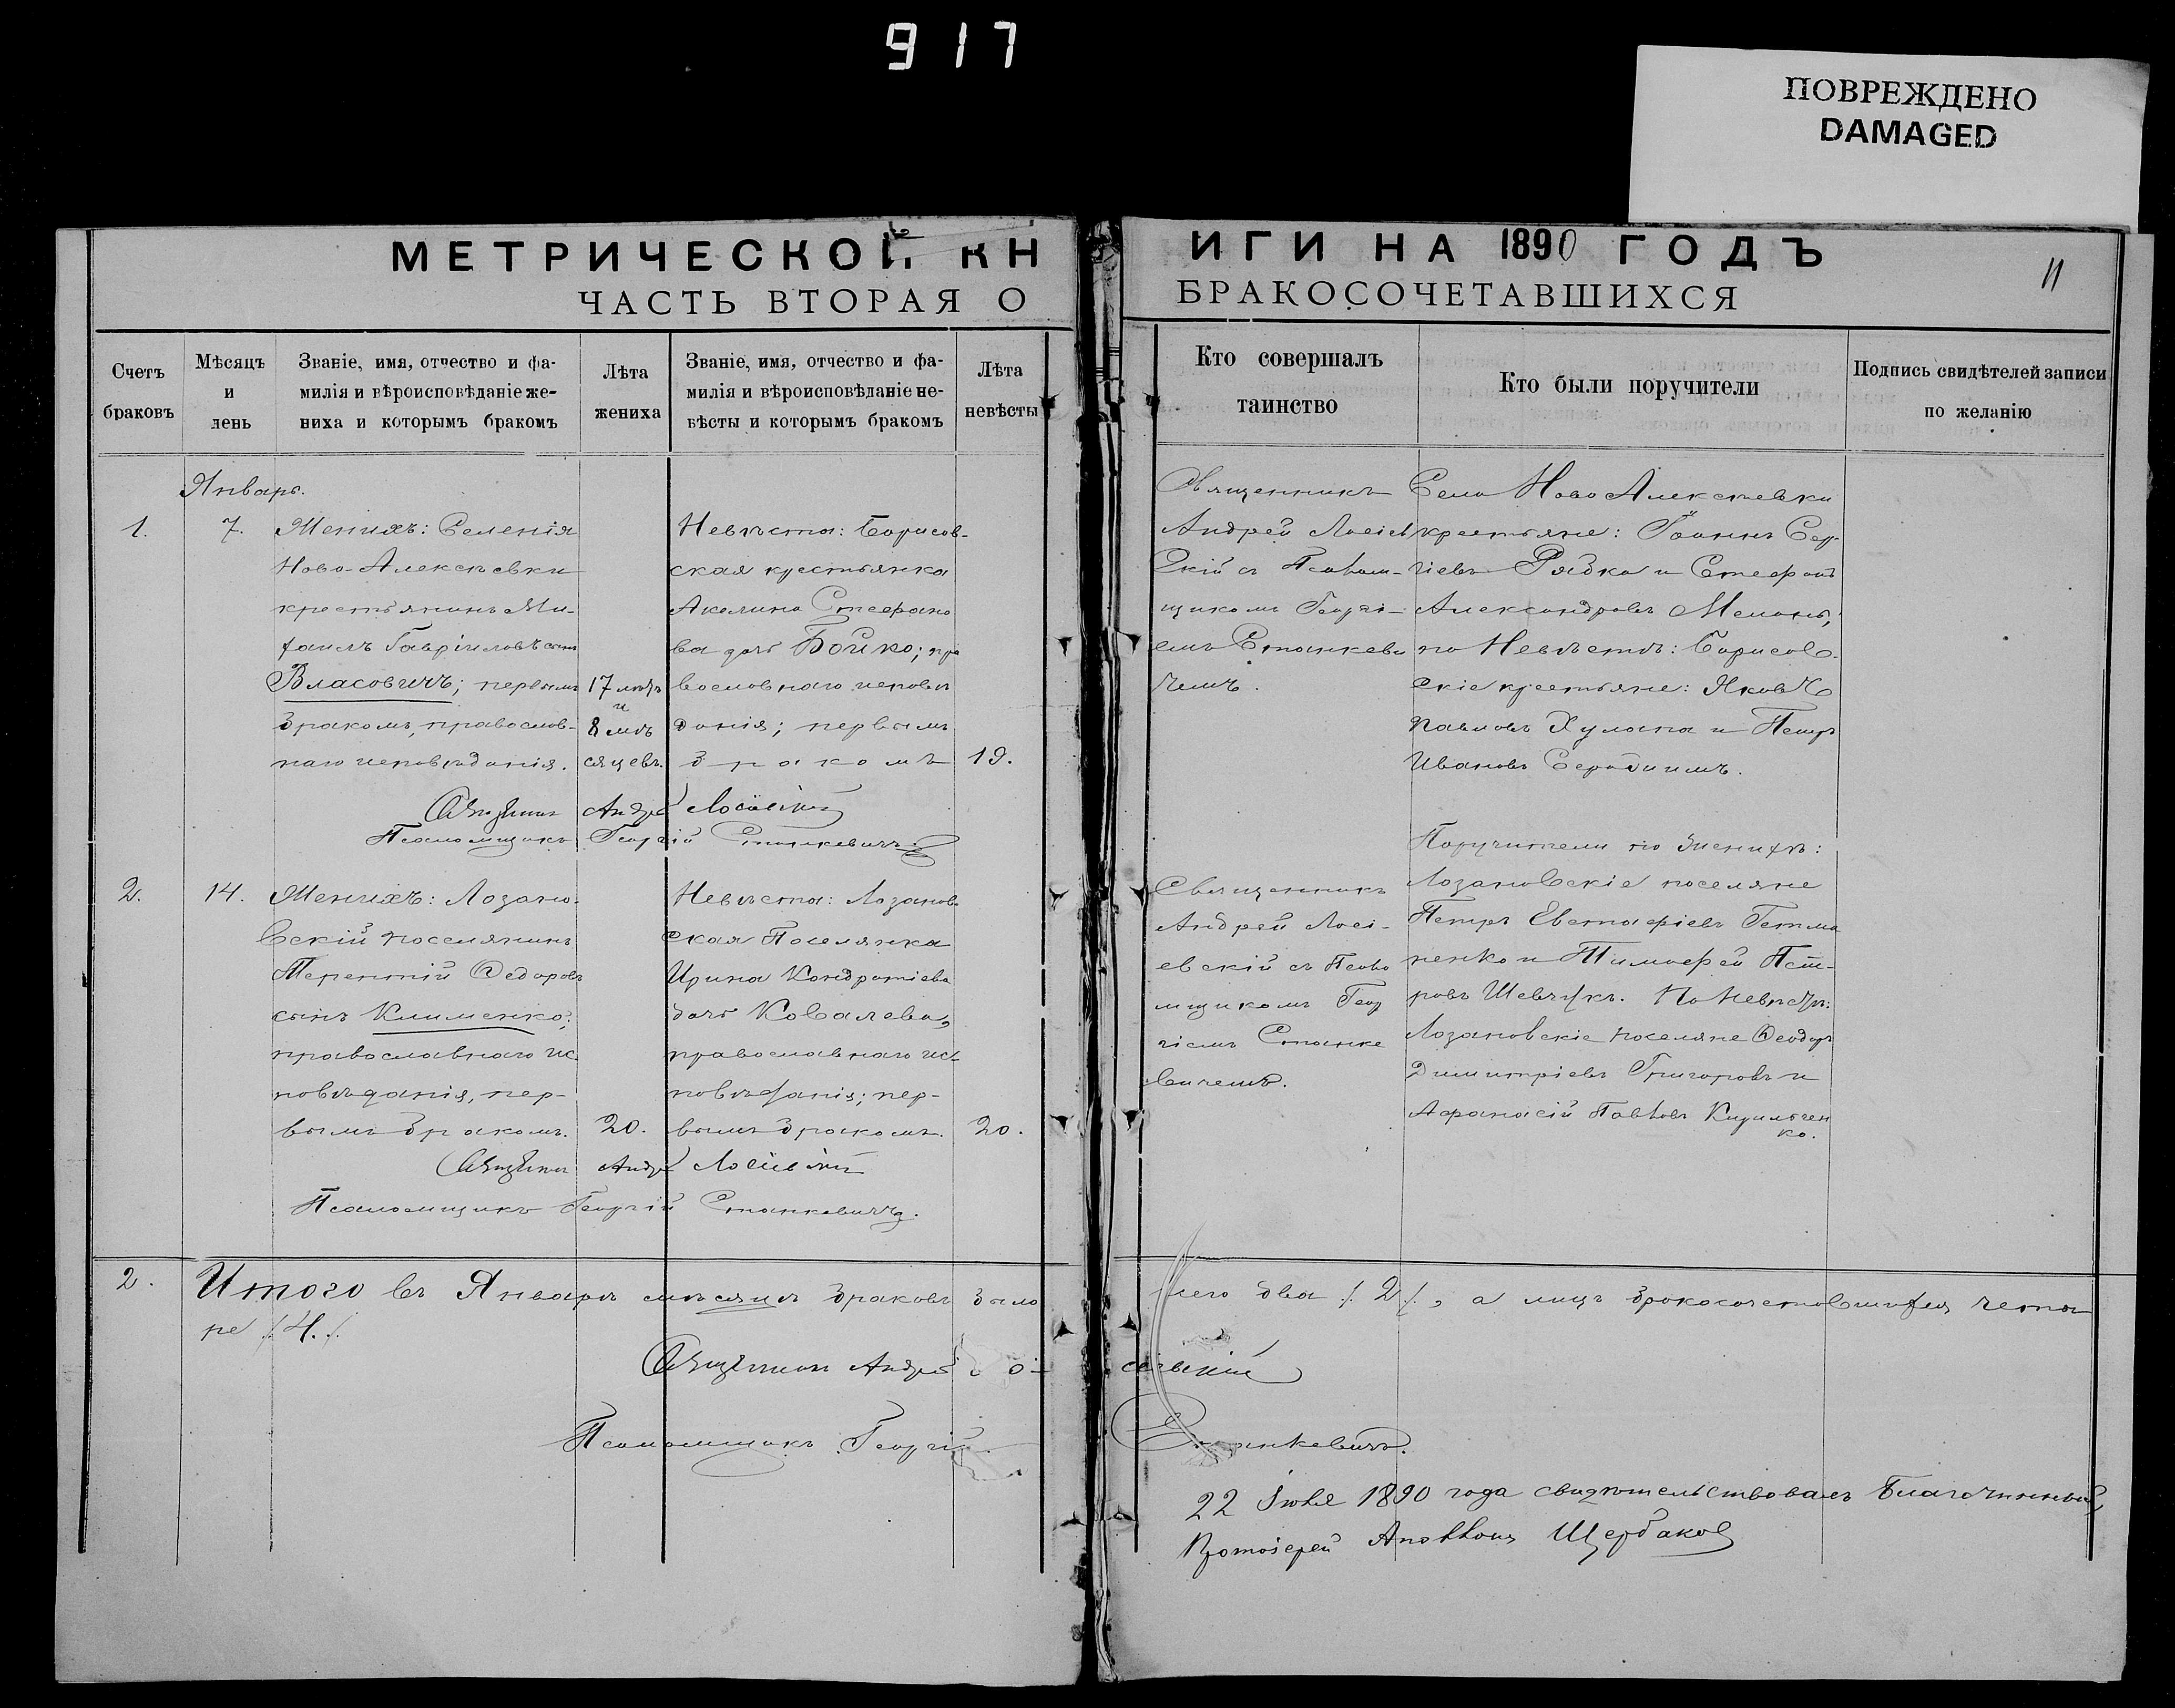 917
ПОВРЕЖДЕНО
DAMAGED
МЕТРИЧЕСКОЙ КНИГИ НА 1890 ГОДЪ
11
ЧАСТЬ ВТОРАЯ О БРАКОСОЧЕТАВШИХСЯ
Счетъ
браковъ
Мѣсяцъ
и
день
Званіе, имя, отчество и фа-
милія и вѣроисповѣданіе же-
ниха и которымъ бракомъ
Лѣта
жениха
Званіе, имя, отчество и фа-
милія и вѣроисповѣданіе не-
вѣсты и которымъ бракомъ
Лѣта
невѣсты
Кто совершалъ
таинство
Кто были поручители
Подпись свидѣтелей записи
по желанію
Январь.
1.
7.
Женихъ: Селенія
Ново-Алексѣевки
крестьянинъ Ми-
хаилъ Гавріиловъ сынъ
Власовичъ; первымъ
бракомъ, православ-
наго исповѣданія.
17 лѣтъ
и
8 мѣ
сяцевъ.
Невѣста: Борисов-
ская крестьянка
Акилина Стефано
ва дочь Бойко; пра
вославнаго исповѣ
данія; первымъ
бракомъ
19.
Священникъ
Андрей Лосіев
скій съ Псалом-
щикомъ Георгі-
емъ Станкеви
чемъ.
Села Ново Алексѣевки
крестьяне: Іоаннъ Сер-
гіевъ Рябка и Стефанъ
Александровъ
по Невѣстѣ: Борисов-
скіе крестьяне: Яковъ
Павловъ Хулапа и Петръ
Ивановъ
Священникъ Андрей Лосіевскій
Псаломщикъ Георгій Станкевичъ
2.
14.
Женихъ: Лозано-
вскій поселянинъ
Терентій Ѳедоровъ
сынъ Клименко;
православнаго ис-
повѣданія, пер-
вымъ бракомъ.
20.
Невѣста: Лозанов-
ская Поселянка
Ирина Кондратіева
дочь Ковалева,
православнаго ис-
повѣданія; пер-
вымъ бракомъ.
20.
Священникъ
Андрей Лосі-
евскій съ Псало
мщикомъ Геор
гіемъ Станке
вичемъ.
Поручители по Женихѣ:
Лозановскіе поселяне
Петръ Евстафіевъ Гетма
ненко и Тимофей Пет-
ровъ Шевчукъ. По Невѣстѣ:
Лозановскіе поселяне Ѳеодоръ
Димитріевъ Григоровъ и
Афанасій Павловъ Кирильчен
ко.
Священникъ Андрей Лосіевскій
Псаломщикъ Георгій Станкевичъ.
2.
Итого въ Январѣ мѣсяцѣ браковъ было всего два /.2/., а лицъ бракосочетавшихся четы
ре /.4./.
Священникъ Андрей Лосіевскій
Псаломщикъ Георгій Станкевичъ.
22 Іюля 1890 года свидѣтельствовалъ Благочинный,
Протоіерей Аполлонъ Щербаковъ